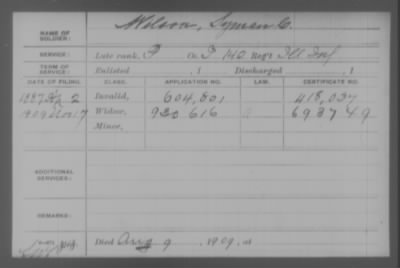 NAME OF SOLDIER: Wilson, Lyman C.
SERVICE: Late rank, P Co. 140 Reg't Ill Inf
TERM OF SERVICE: Enlisted , 1 Discharged , 1
DATE OF FILING. CLASS. APPLICATION NO. LAW. CERTIFICATE NO.
1887 2 Invalid, 604,801 418,037
1909 Nov 17 Widow, 930 616 698749
Minor,
ADDITIONAL SERVICES:
REMARKS:
Died Aug 9 , 1909, at